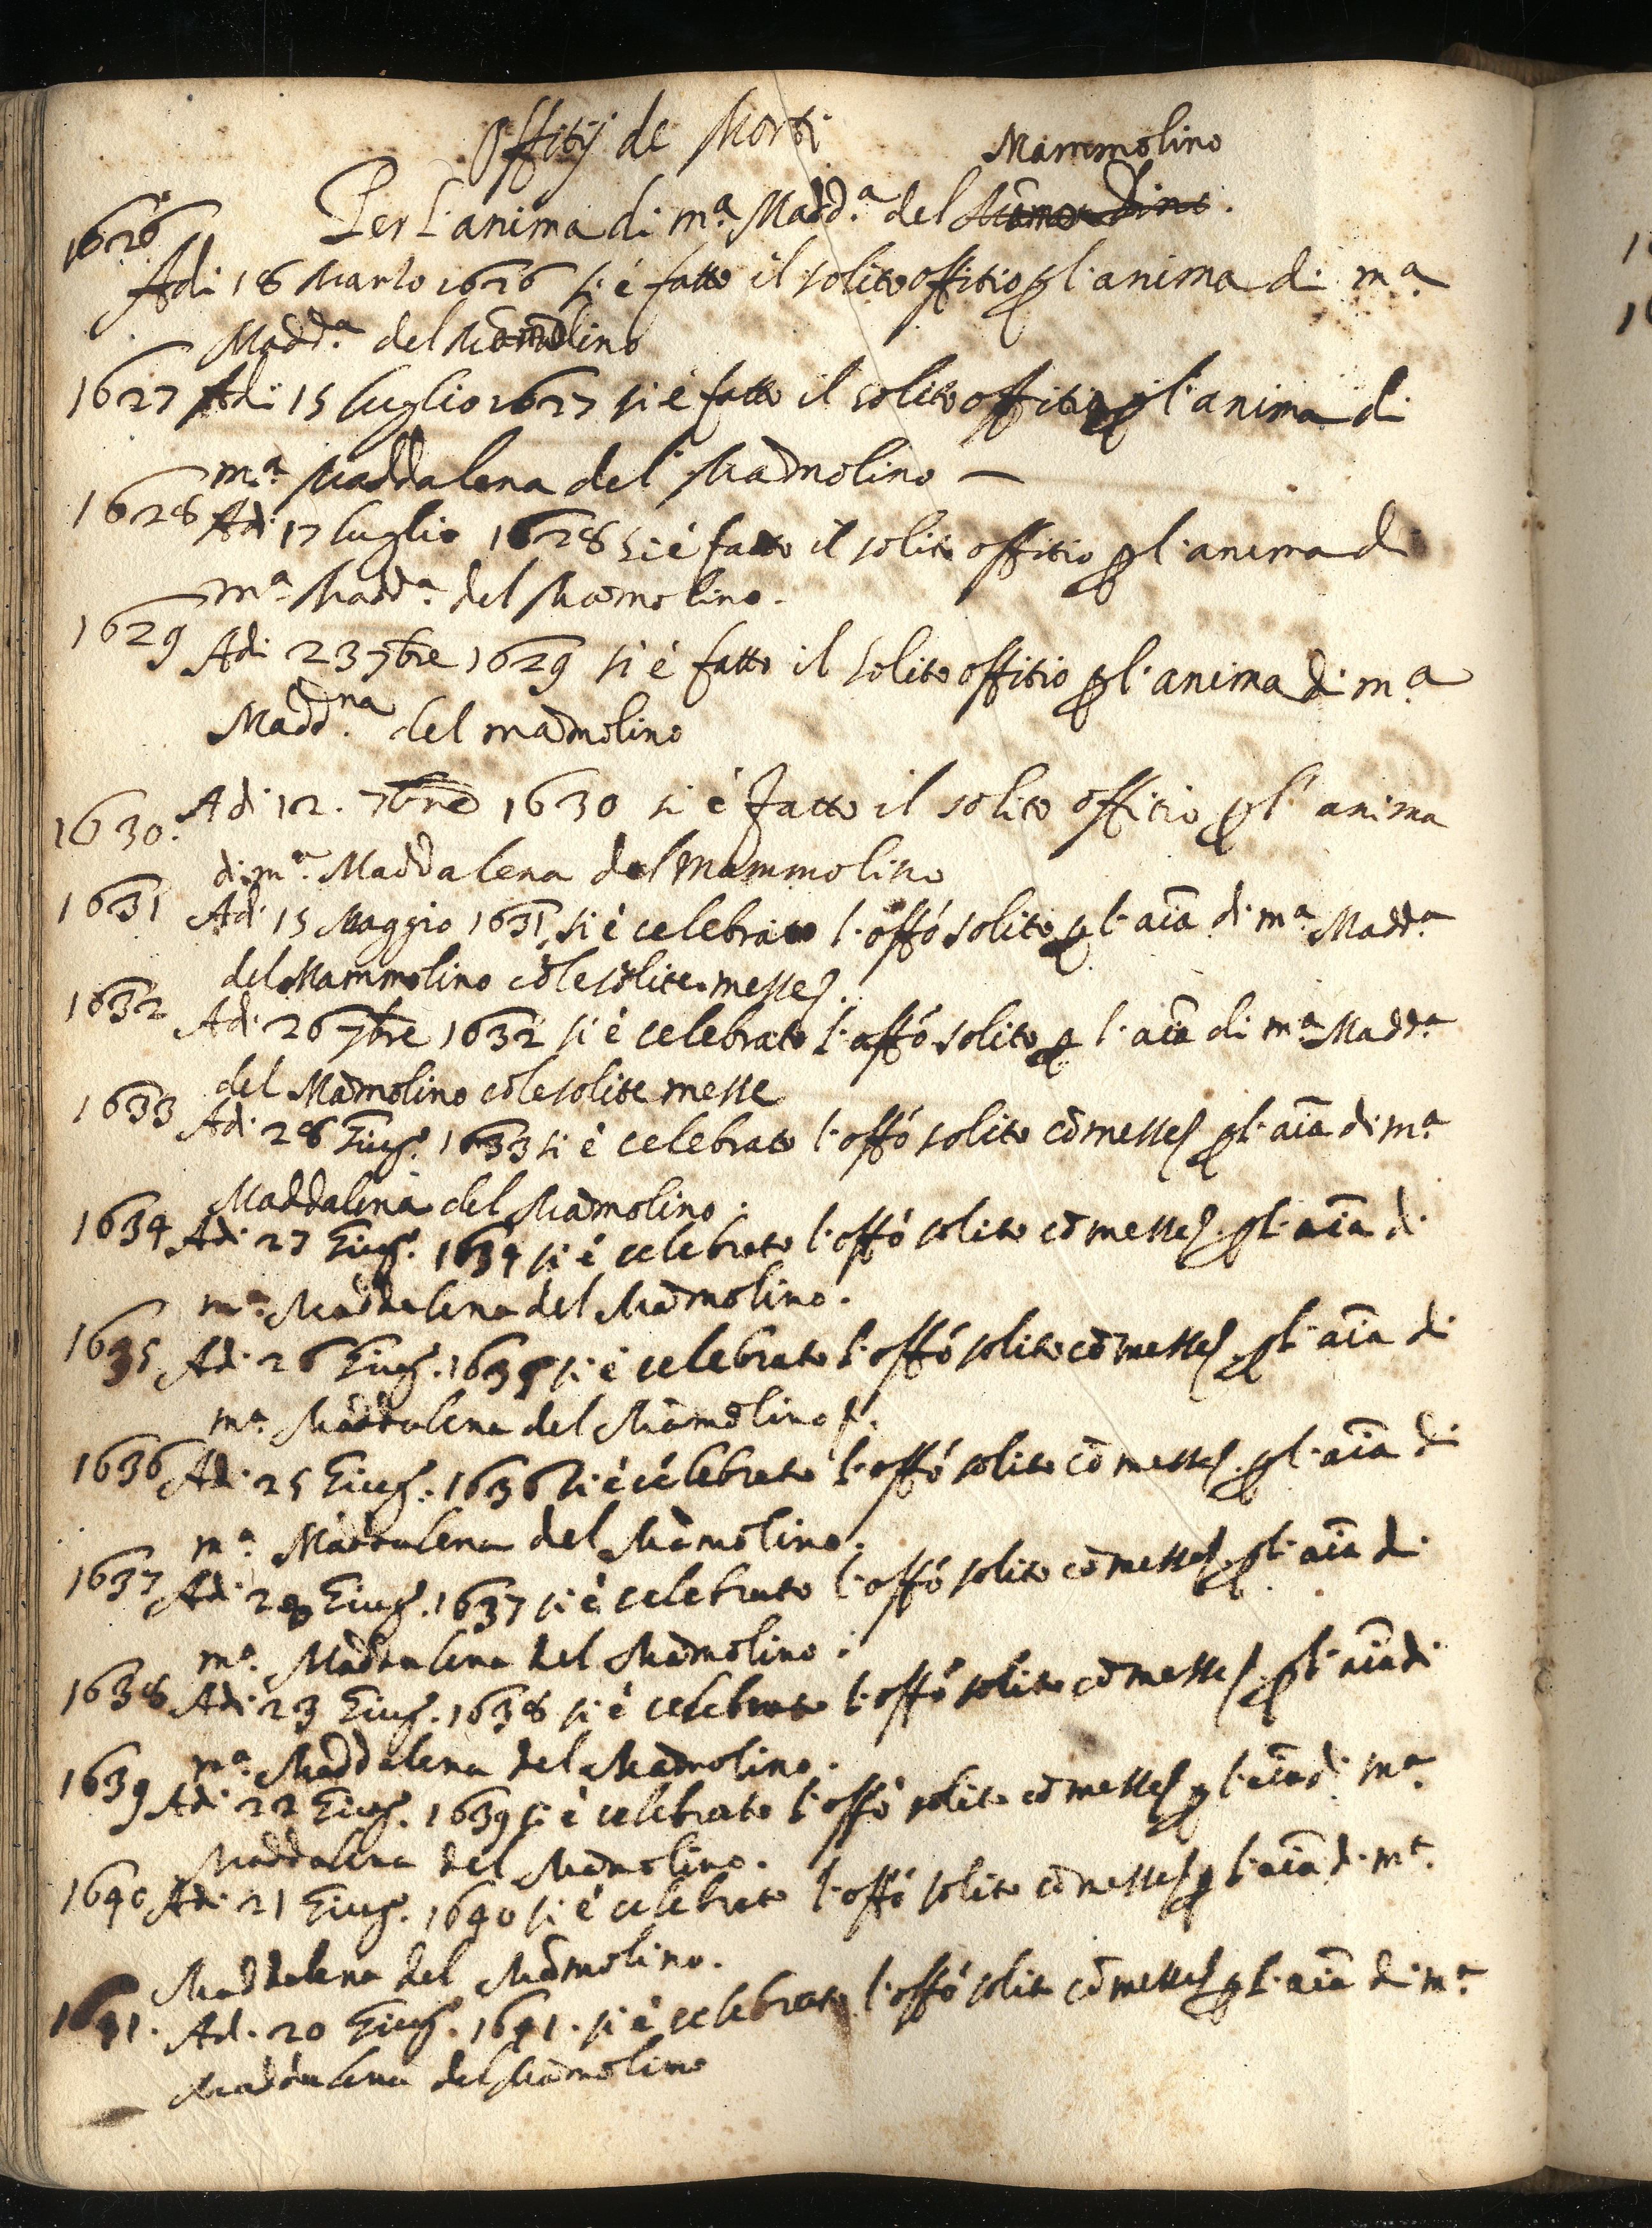 Offitij de Morti
Mammolino
Per l'anima di m.ª Madd.ª del
1626
Adi 18 Marzo 1626 si è fatto il solito offitio p l'anima di m.ª
Madd.ª del Mamolino
1627 Adi 15 luglio 1627 si è fatto il solito offitio p l'anima di
m.ª Maddalena del Mãmolino —
1628 Adi 17 luglio 1628 si è fatto il solito offitio p l'anima di
m.ª Madd.ª del Mãmolino.
1629 Adi 23 7bre 1629 si è fatto il solito offitio p l'anima di m.ª
Madd.na del mãmolino
1630. Adi 12. 7bre 1630 si è fatto il solito offitio p l'anima
di m.ª Maddalena del Mammolino
1631 Adi 15 Maggio 1631 si è celebrato l'offo solito p l'aĩa di m.ª Madd.ª
del Mammolino cõ le solite messe.
1632 Adi 26 7bre 1632 si è celebrato l'offo solito p l'aĩa di m.ª Madd.ª
del Mãmolino cõ le solite messe
1633 Adi 28 Giug.º 1633 si è celebrato l'offo solito cõ messe p l'aĩa di m.ª
Maddalena del Mãmolino.
1634 Adi 27 Giug.º 1634 si è celebrato l'offo solito cõ messe p l'aĩa di
m.ª Maddalena del Mãmolino.
1635 Adi 26 Giug. 1635 si è celebrato l'offo solito cõ messe p l'aĩa di
m.ª Maddalena del Mãmolino.
1636 Adi 25 Giug. 1636 si è celebrato l'offo solito cõ messe p l'aĩa di
m.ª Maddalena del Mãmolino.
1637 Adi Giug. 1637 si è celebrato l'offo solito cõ messe p l'aĩa di
m.ª Maddalena del Mãmolino.
1638 Adi 23 Giug. 1638 si è celebrato l'offo solito cõ messe p l'aĩa di
m.ª Maddalena del Mãmolino.
1639 Adi 22 Giug. 1639 si è celebrato l'offo solito cõ messe p l'aĩa di m.ª
Maddalena del Mãmolino.
1640 Adi 21 Giug. 1640 si è celebrato l'offo solito cõ messe p l'aĩa di m.ª
Maddalena del Mãmolino.
1641. Ad. 20 Giug. 1641. si è celebrato l'offo solito cõ messe p l'aĩa di m.ª
Maddalena del Mãmolino